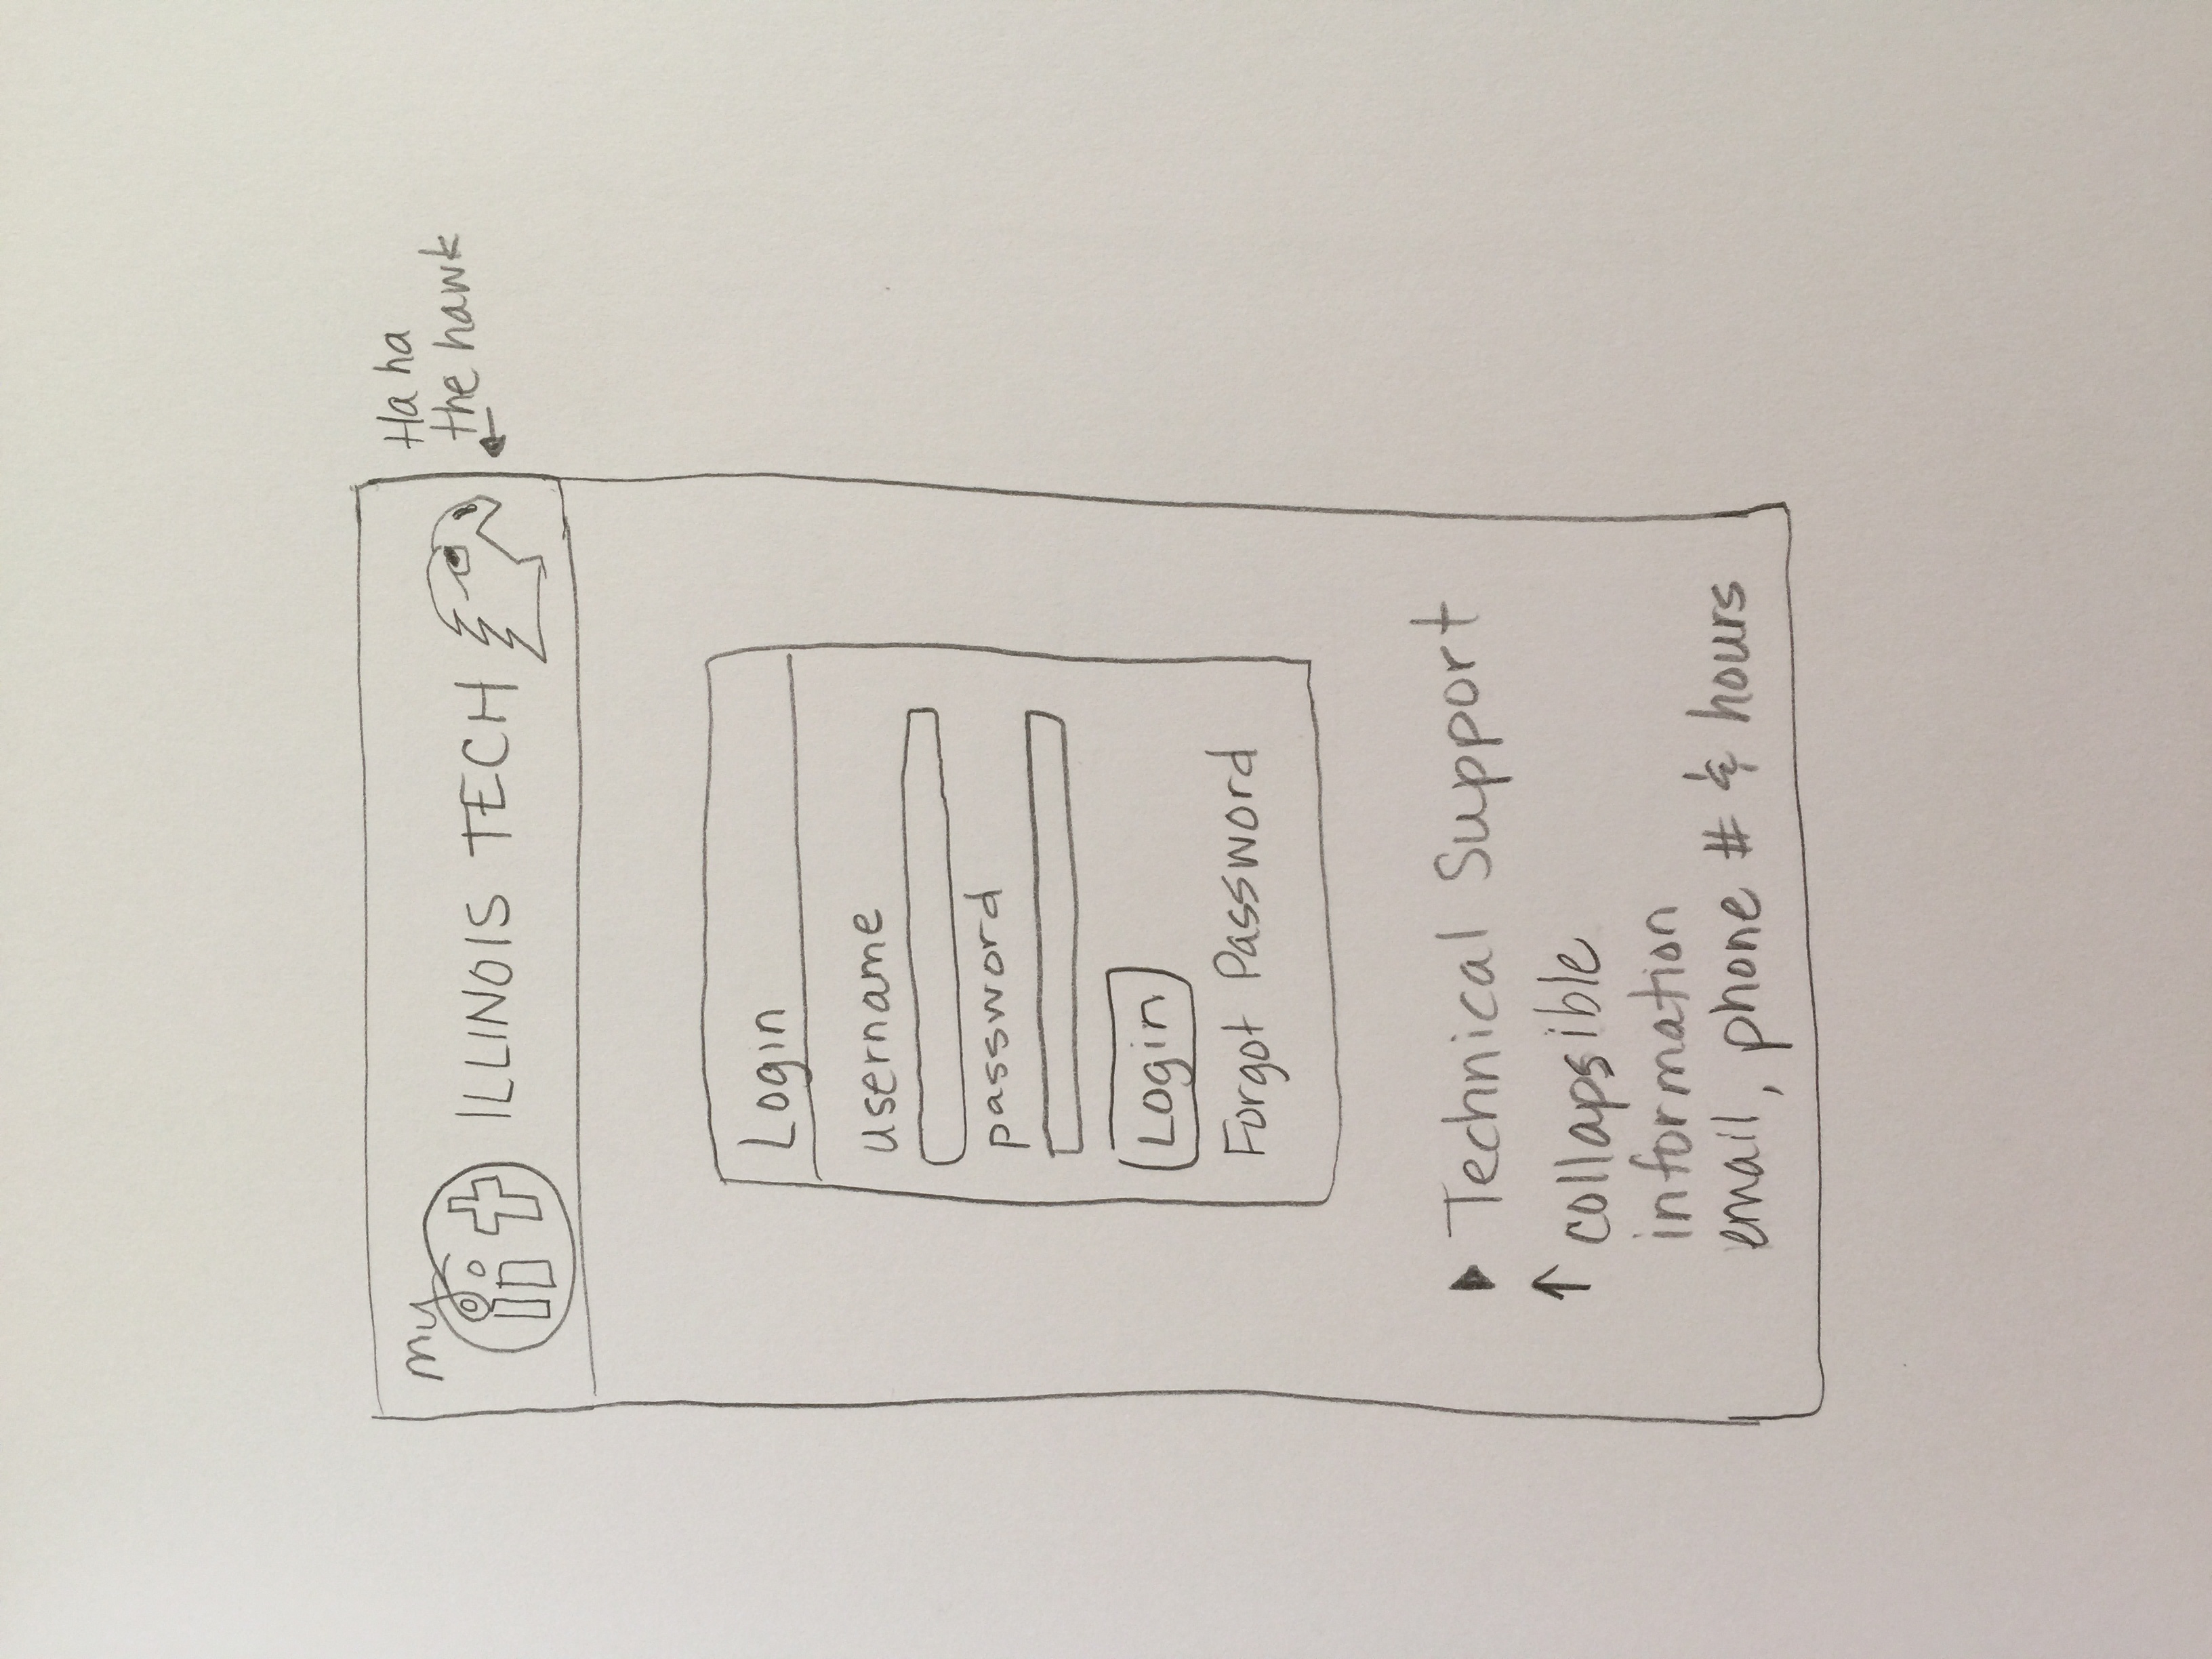 my
iit ILLINOIS TECH
Ha ha
the hawk
Login
username
password
Login
Forgot Password
Technical Support
collapsible
information
email, phone # & hours